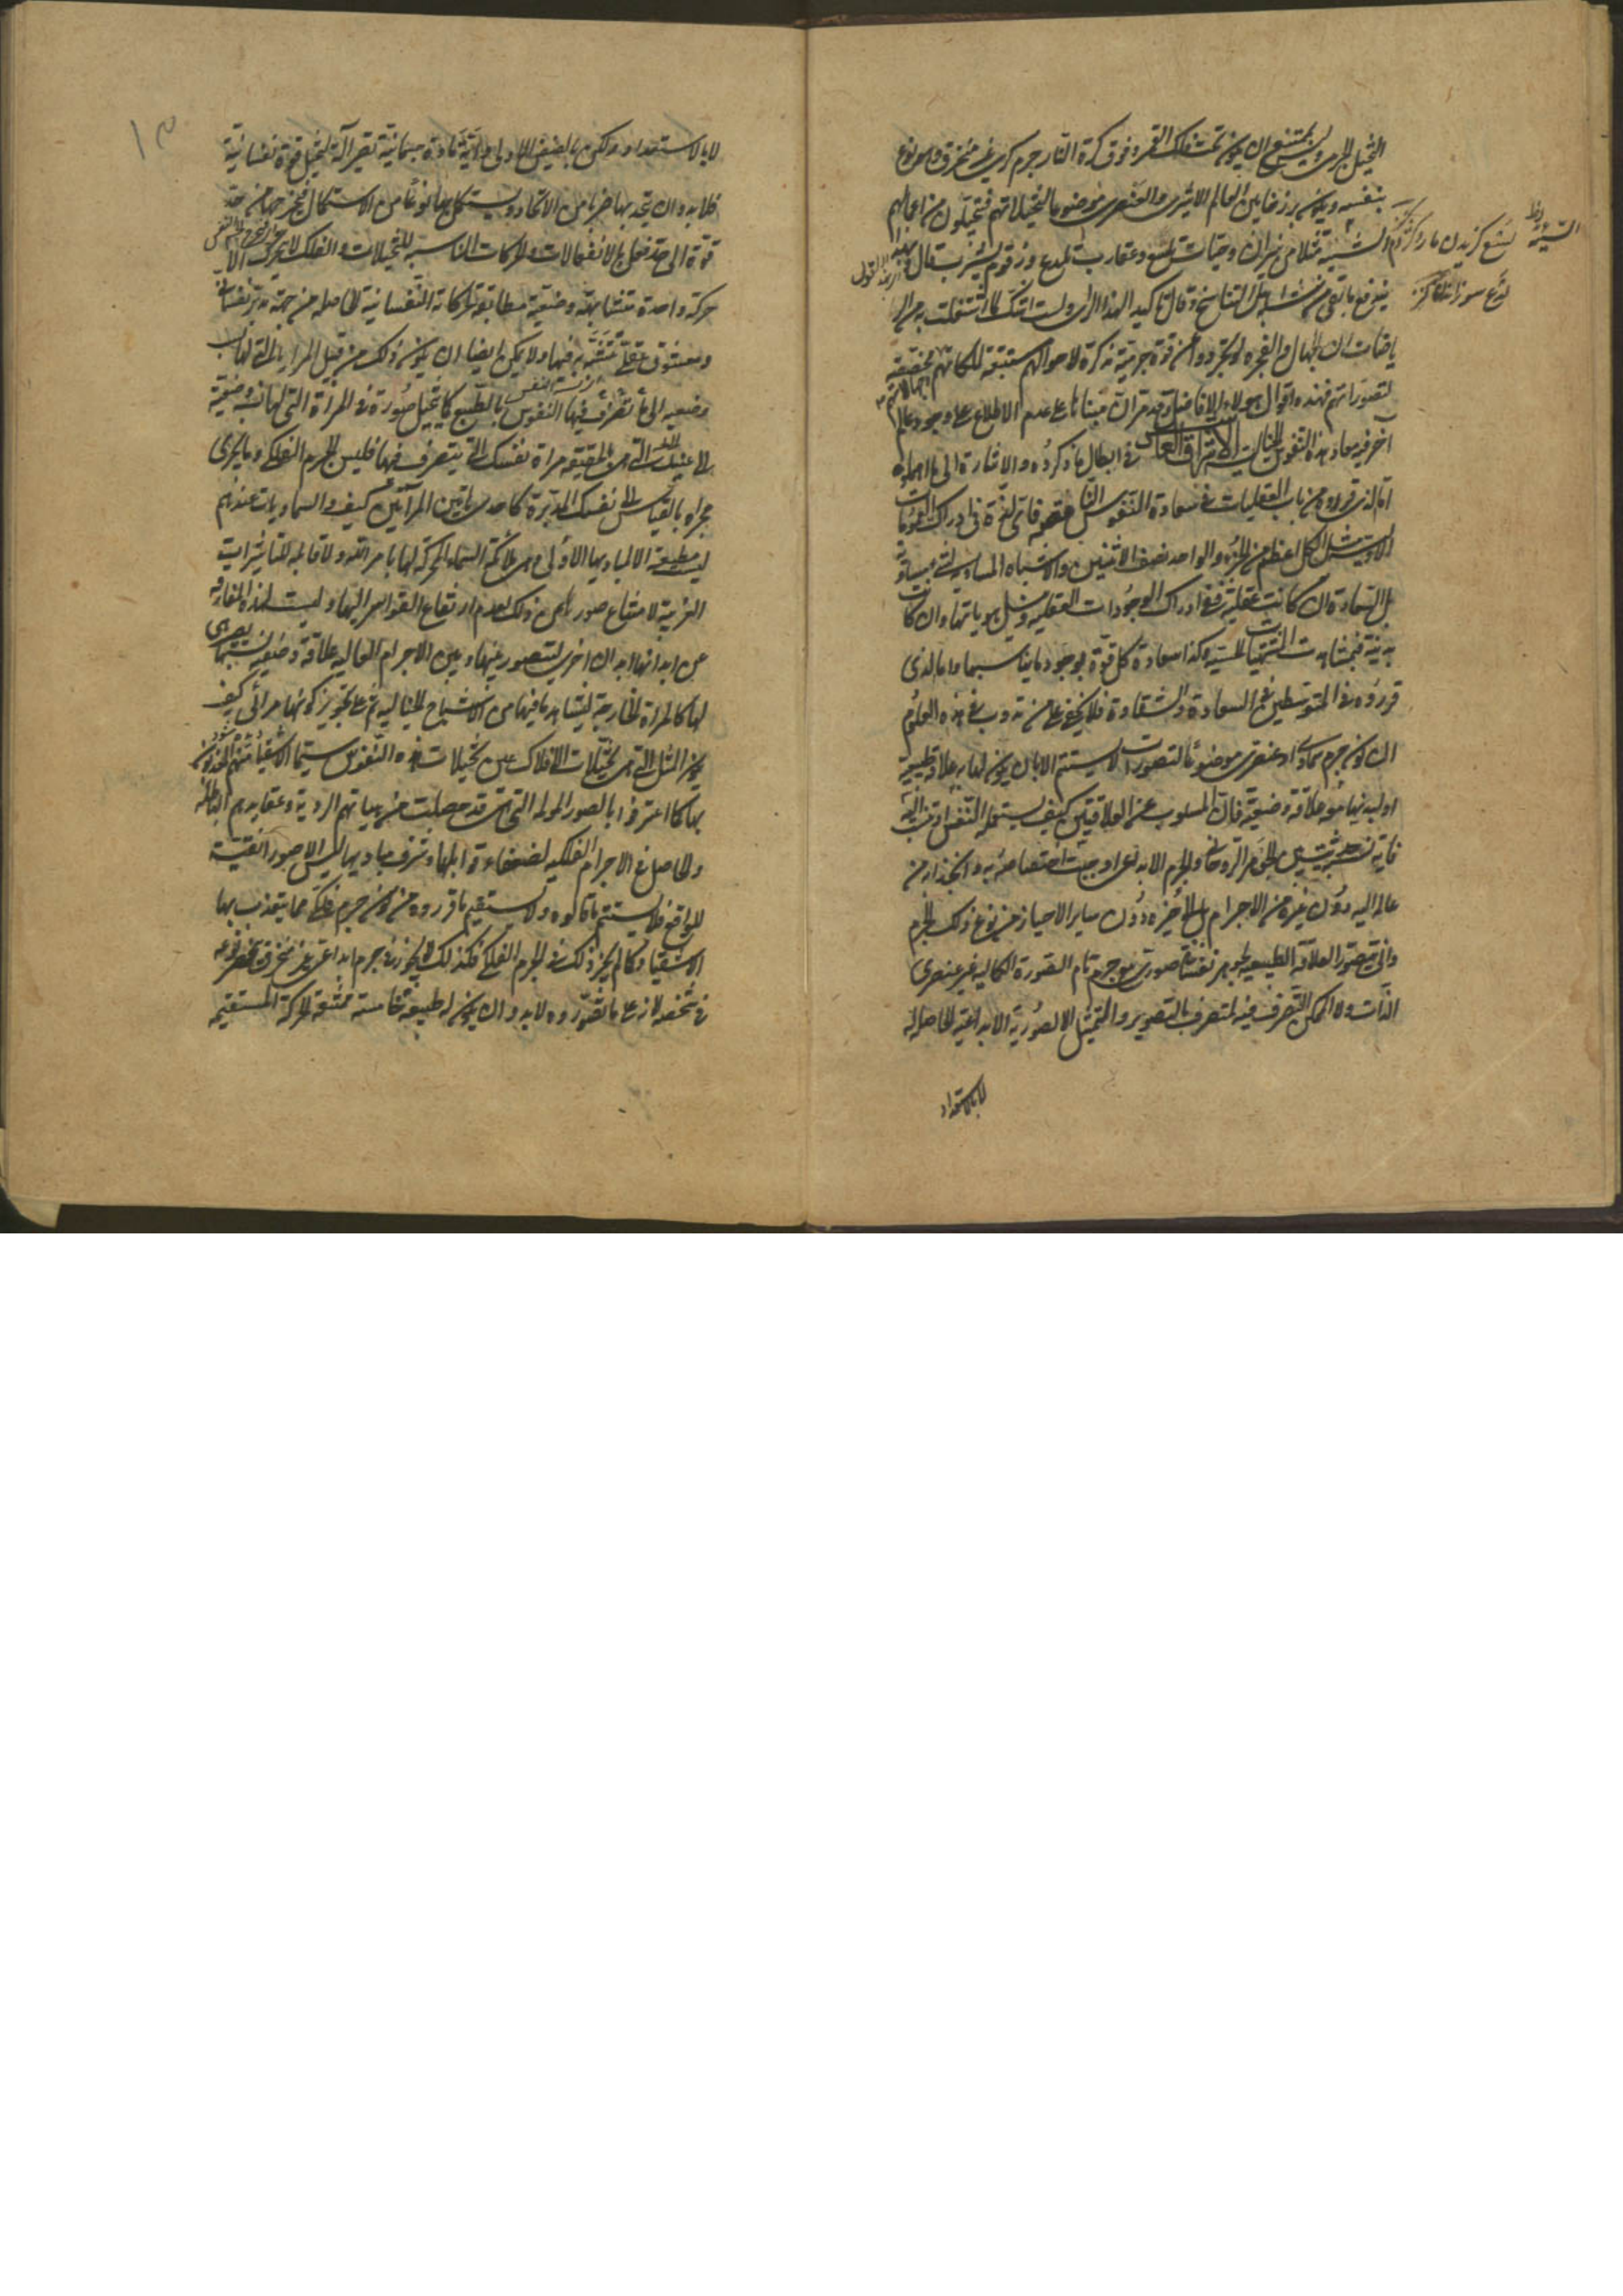 التخيل الجرمى وليس يمتنع ان يكون تحت فلك القمر وفوق كرة النار جرم كرى غير منخرق وهو نوع
بنفسه ويكون برزخا بين العالم الاثيرى والعنصرى موضوعا لتخيلاتهم فيتخيلون من اعمالهم
السيئة مثلا من نيران وحيات تلسع وعقارب تلدغ وزقوم يشرب قال
يندفع ما بقى من شبه اهل التناسخ وقال تاكيدا لهذا الراى ولست اشك لما اشتغلت به من الر
ياضات ان الجهال والفجرة لو تجردوا عن قوة جرمية مذكرة لاحوالهم مستتبعة للكاتهم مخصصة
لتصوراتهم فهذه اقوال هولاء الافاضل وقد مر ان مبناها على عدم الاطلاع على وجود عالم
آخر فيه معاد هذه النفوس الاشراق العاشر فى ابطال ما ذكروه والاشارة الى ما اهملوه
اما الذى قرروه من باب العقليات فى سعادة النفوس الناقصة فاى لذة فى ادراك العمومات
الاولية مثل الكل اعظم من الجزء والواحد نصف الاثنين والاشياء المساوية لشئ متساوية
بل السعادة ان كانت عقلية ففى ادراك الوجودات العقلية ونيل هوياتها وان كانت
بدنية فبمشاهدة المشتهيات الحسية وكذا سعادة كل قوة بوجود ما يناسبها واما الذى
قرروه فى المتوسطين فى السعادة والشقاوة فلا يخفى على من تدرب فى هذه العلوم
ان كون جرم سماوى او عنصرى موضوعا لتصورات لا يستتم الا بان يكون لها به علاقة طبيعية
او لبدنها معه علاقة وضعية فان المسلوب عنه العلاقتين كيف يستعمله النفس او تنسب اليه
فاية نسبة حدثت بين الجوهر الروحانى والجرم الابداعى اوجبت اختصاصه به وانجذابه من
عالمه اليه دون غيره من الاجرام بل الى حيزه دون ساير الاحياز من نوع ذلك الجرم
وانى يتصور العلاقة الطبيعية لجوهر نفسانى صورى مع جرم تام الصورة الكمالية غير عنصرى
الذات ولا الممكن التصرف فيه لمتصرف بالتصوير والتمثيل الا لصورته الابداعية الحاصلة له
لا بالاستعداد
السيئة
لسع گزيدن مار و كژدم
لذع سوزانيدن
لا بالاستعداد ولكن بالفيض الاولى واية مادة جسمانية تصير آلة لتخيل قوة نفسانية
فلا بد وان تتحد بها ضربا من الاتحاد ويستكمل بها نوعا من الاستكمال فتخرجها من حد
قوة الى حد فعل بالانفعالات والحركات المناسبة للتخيلات والفلك لا يتحرك الا
حركة واحدة متشابهة وضعية مطابقة لحركاته النفسانية الحاصلة من جهة مدبر نفسانى
ومعشوق عقلى تتشبه به فيهما ولا يمكن ايضا ان يكون ذلك من قبيل المرايا التى لها نسبة
وضعية الى ما تصرف فيها النفوس بالطبع كما يتخيل صورة فى المرآة التى لها نسبة وضعية
الى عينك التى هى بالحقيقة مرآة نفسك التى يتصرف فيها فليس الجرم الفلكى وما يجرى
مجراه بالقياس الى نفسك المدبرة كاحدى هاتين المرآتين كيف والسماويات عندهم
ليست مطيعة الا لمباديها الاولى وهى ملائكة السماء المحركة لها بامر الله ولا قابلة للتاثيرات
الغريبة لامتناع صورها عن ذلك لعدم ارتفاع القواسر اليها وليست لهذه المفارقة
عن ابدانها ابدان اخرى ليتصور بينها وبين الاجرام العالية علاقة وضعية بسببها يصير هى
لها كالمرآة الخارجة ليشاهد ما فيها من الاشباح الخيالية ثم على تجويز كونها مرائى كيف
يكون المثل التى هى تخيلات الافلاك عين تخيلات هذه النفوس سيما الاشقياء منهم المعذبون
بها كما اعترفوا بالصور المولمة التى هى قد حصلت من هيئاتهم الردية وعقايدهم الباطلة
والحاصل فى الاجرام الفلكية لصفاء قوابلها وشرف مباديها ليس الا صور نقية
للواقع فلا يستتم ما قالوه ولا يستقيم ما قرروه من كون جرم فلكى مما يتعذب بها
الاشقياء وكما لم يجز ذلك فى الجرم الفلكى فكذلك لا يجوز فى جرم ابداعى غير منخرق منحصر نوعه
فى شخصه لانه على ما تصوروه لا بد وان يكون له طبيعة خامسة ممتنعة الحركة المستقيمة